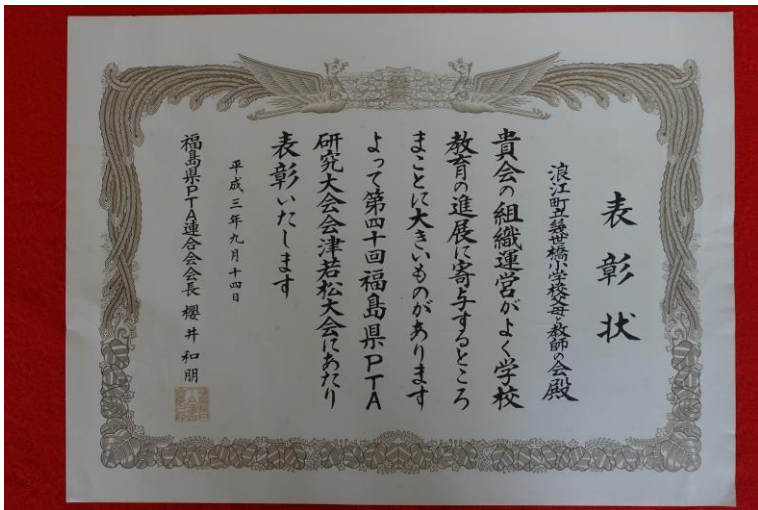 表彰状
浪江町立幾世橋小学校父母と教師の会殿
貴会の組織運営がよく学校
教育の進展に寄与するところ
まことに大きいものがあります
よって第四十回福島県PTA
研究大会会津若松大会にあたり
表彰いたします
平成三年九月十四日
福島県PTA連合会会長 櫻井和朋